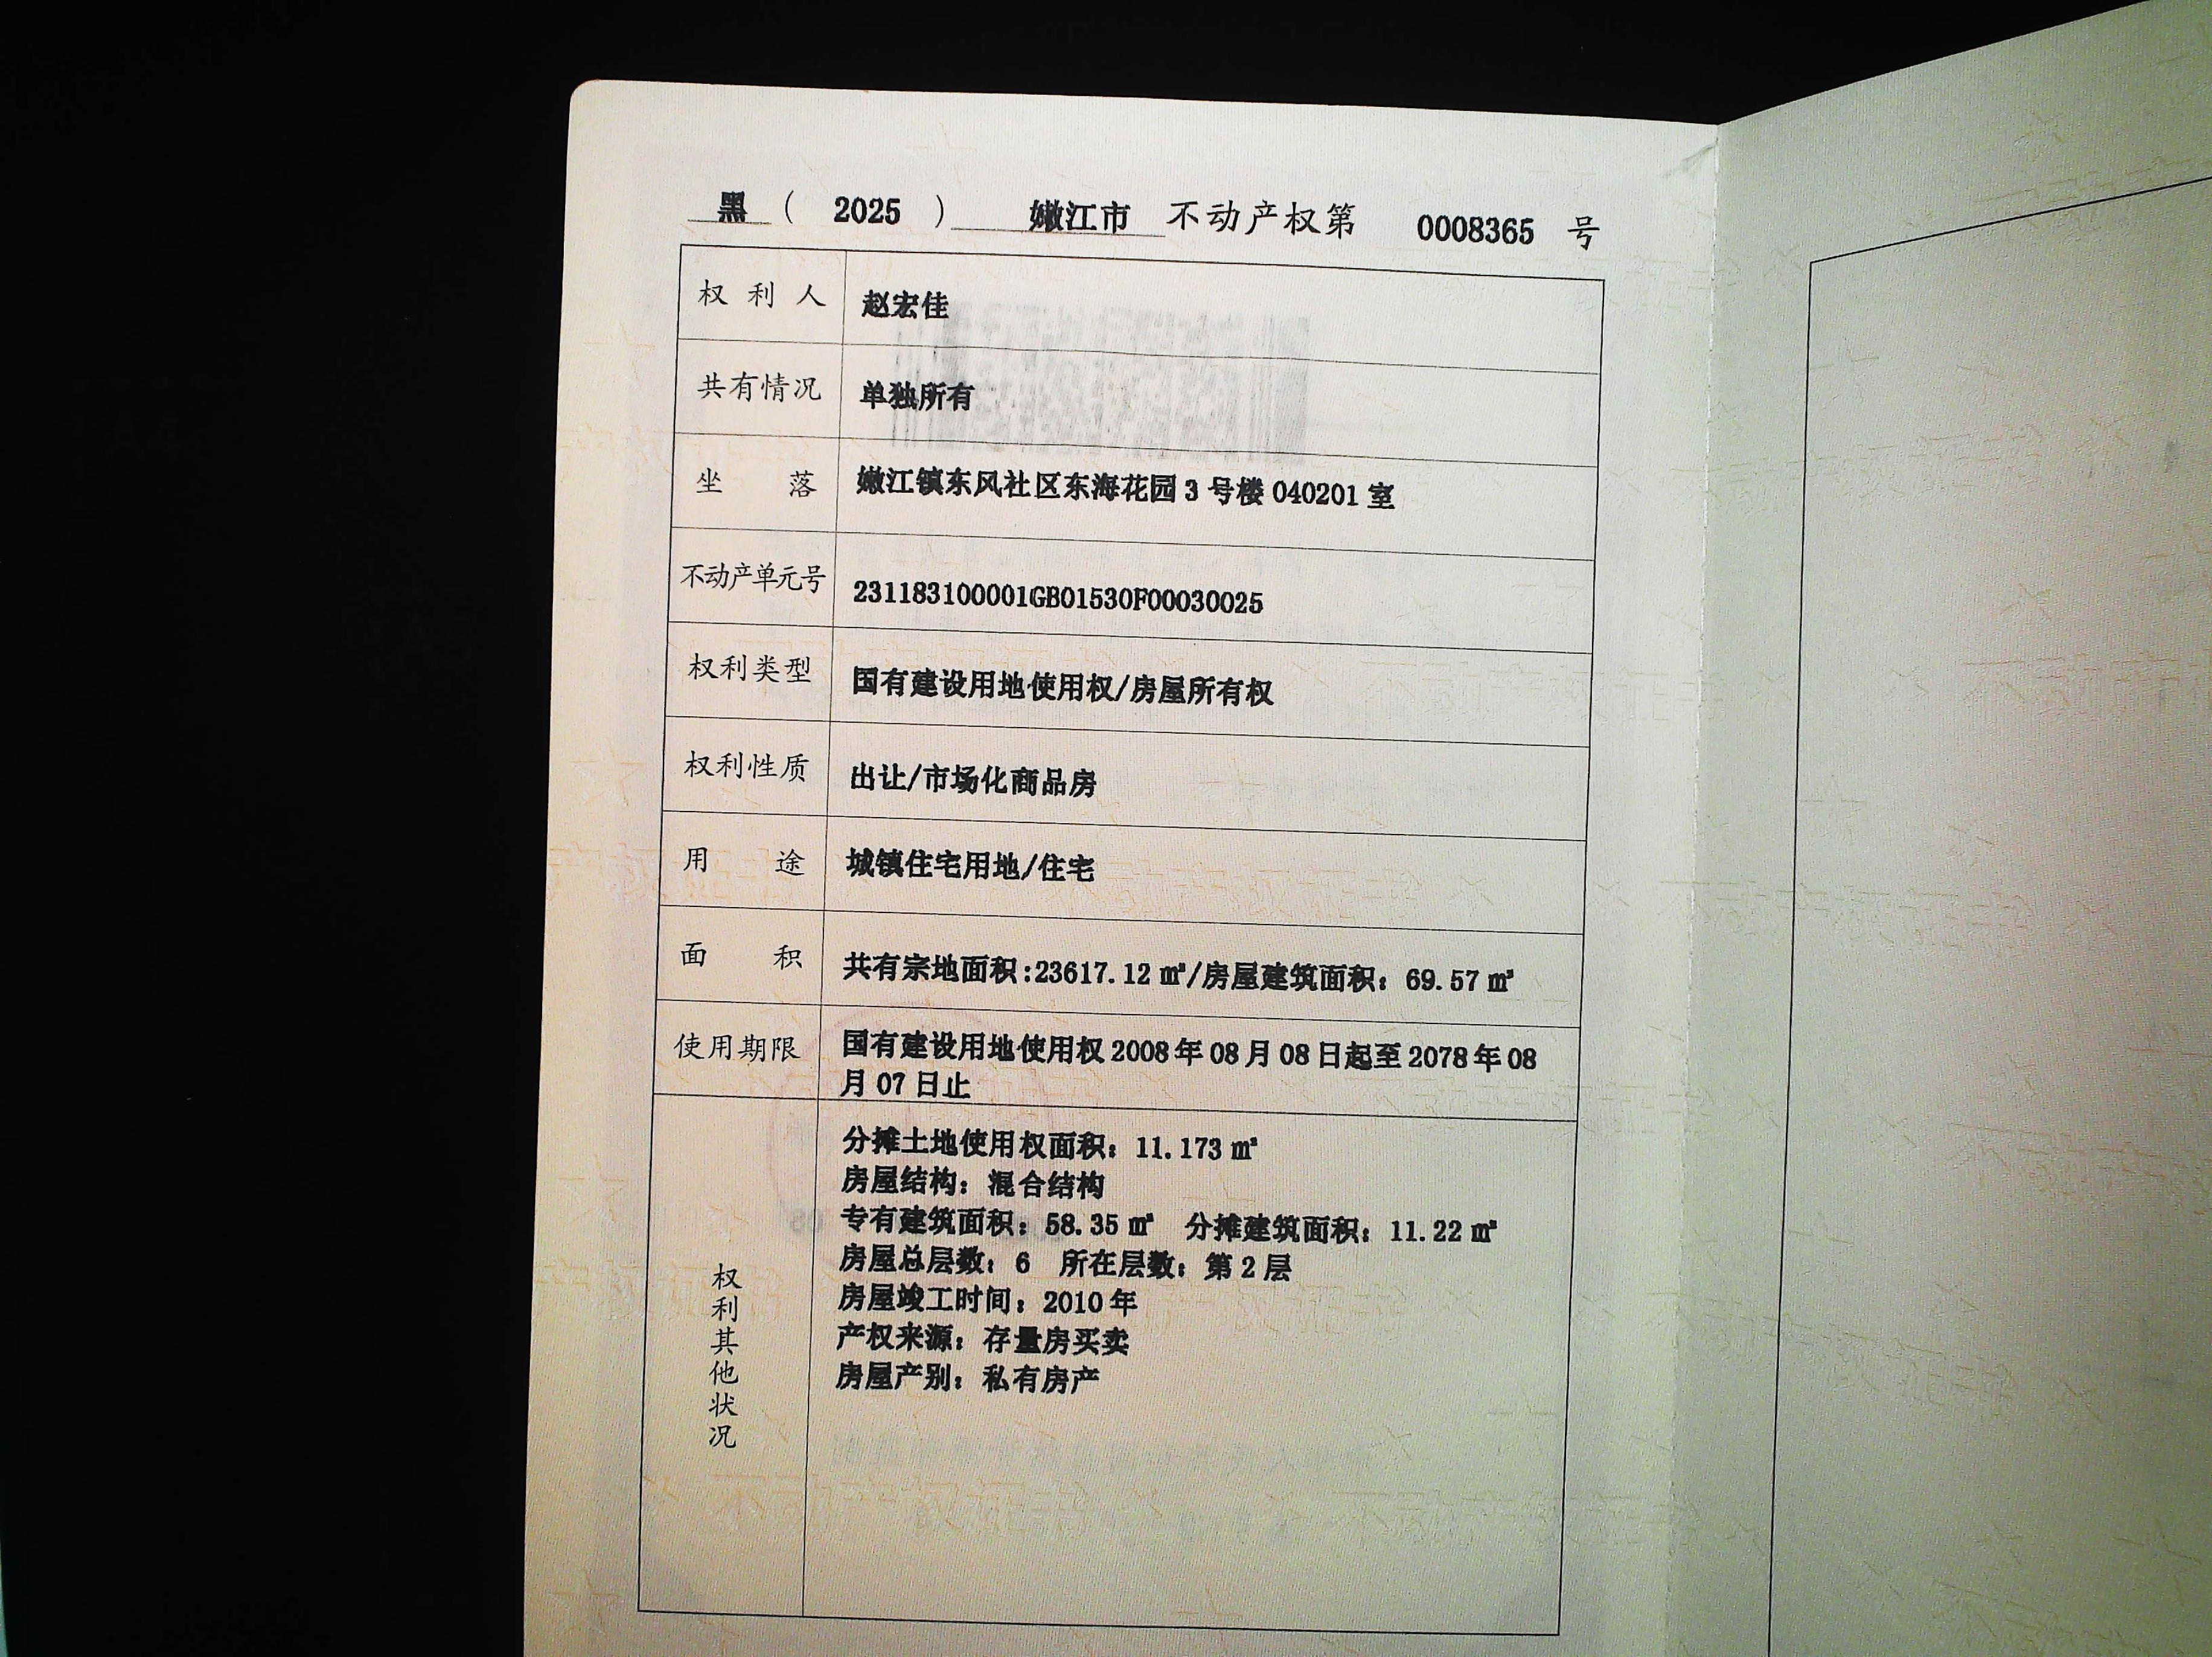 黑 ( 2025 ) 嫩江市 不动产权第 0008365 号
权利人 赵宏佳
共有情况 单独所有
坐落 嫩江镇东风社区东海花园3号楼040201室
不动产单元号 231183100001GB01530F00030025
权利类型 国有建设用地使用权/房屋所有权
权利性质 出让/市场化商品房
用途 城镇住宅用地/住宅
面积 共有宗地面积:23617.12㎡/房屋建筑面积：69.57㎡
使用期限 国有建设用地使用权2008年08月08日起至2078年08
月07日止
权利其他状况
分摊土地使用权面积：11.173㎡
房屋结构：混合结构
专有建筑面积：58.35㎡ 分摊建筑面积：11.22㎡
房屋总层数：6 所在层数：第2层
房屋竣工时间：2010年
产权来源：存量房买卖
房屋产别：私有房产